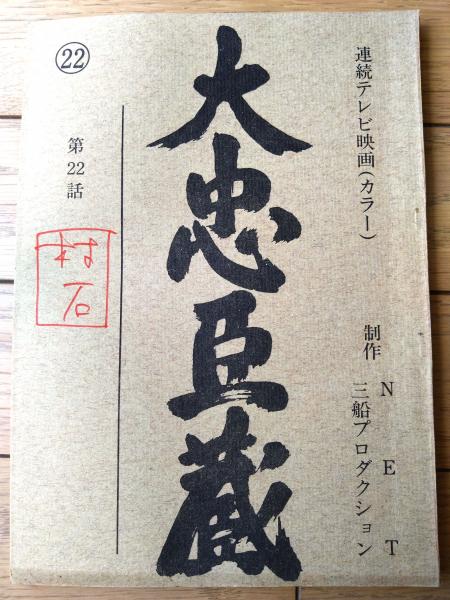 連続テレビ映画(カラー)
制作 NET
三船プロダクション
大忠臣蔵
第22話
㉒
村石